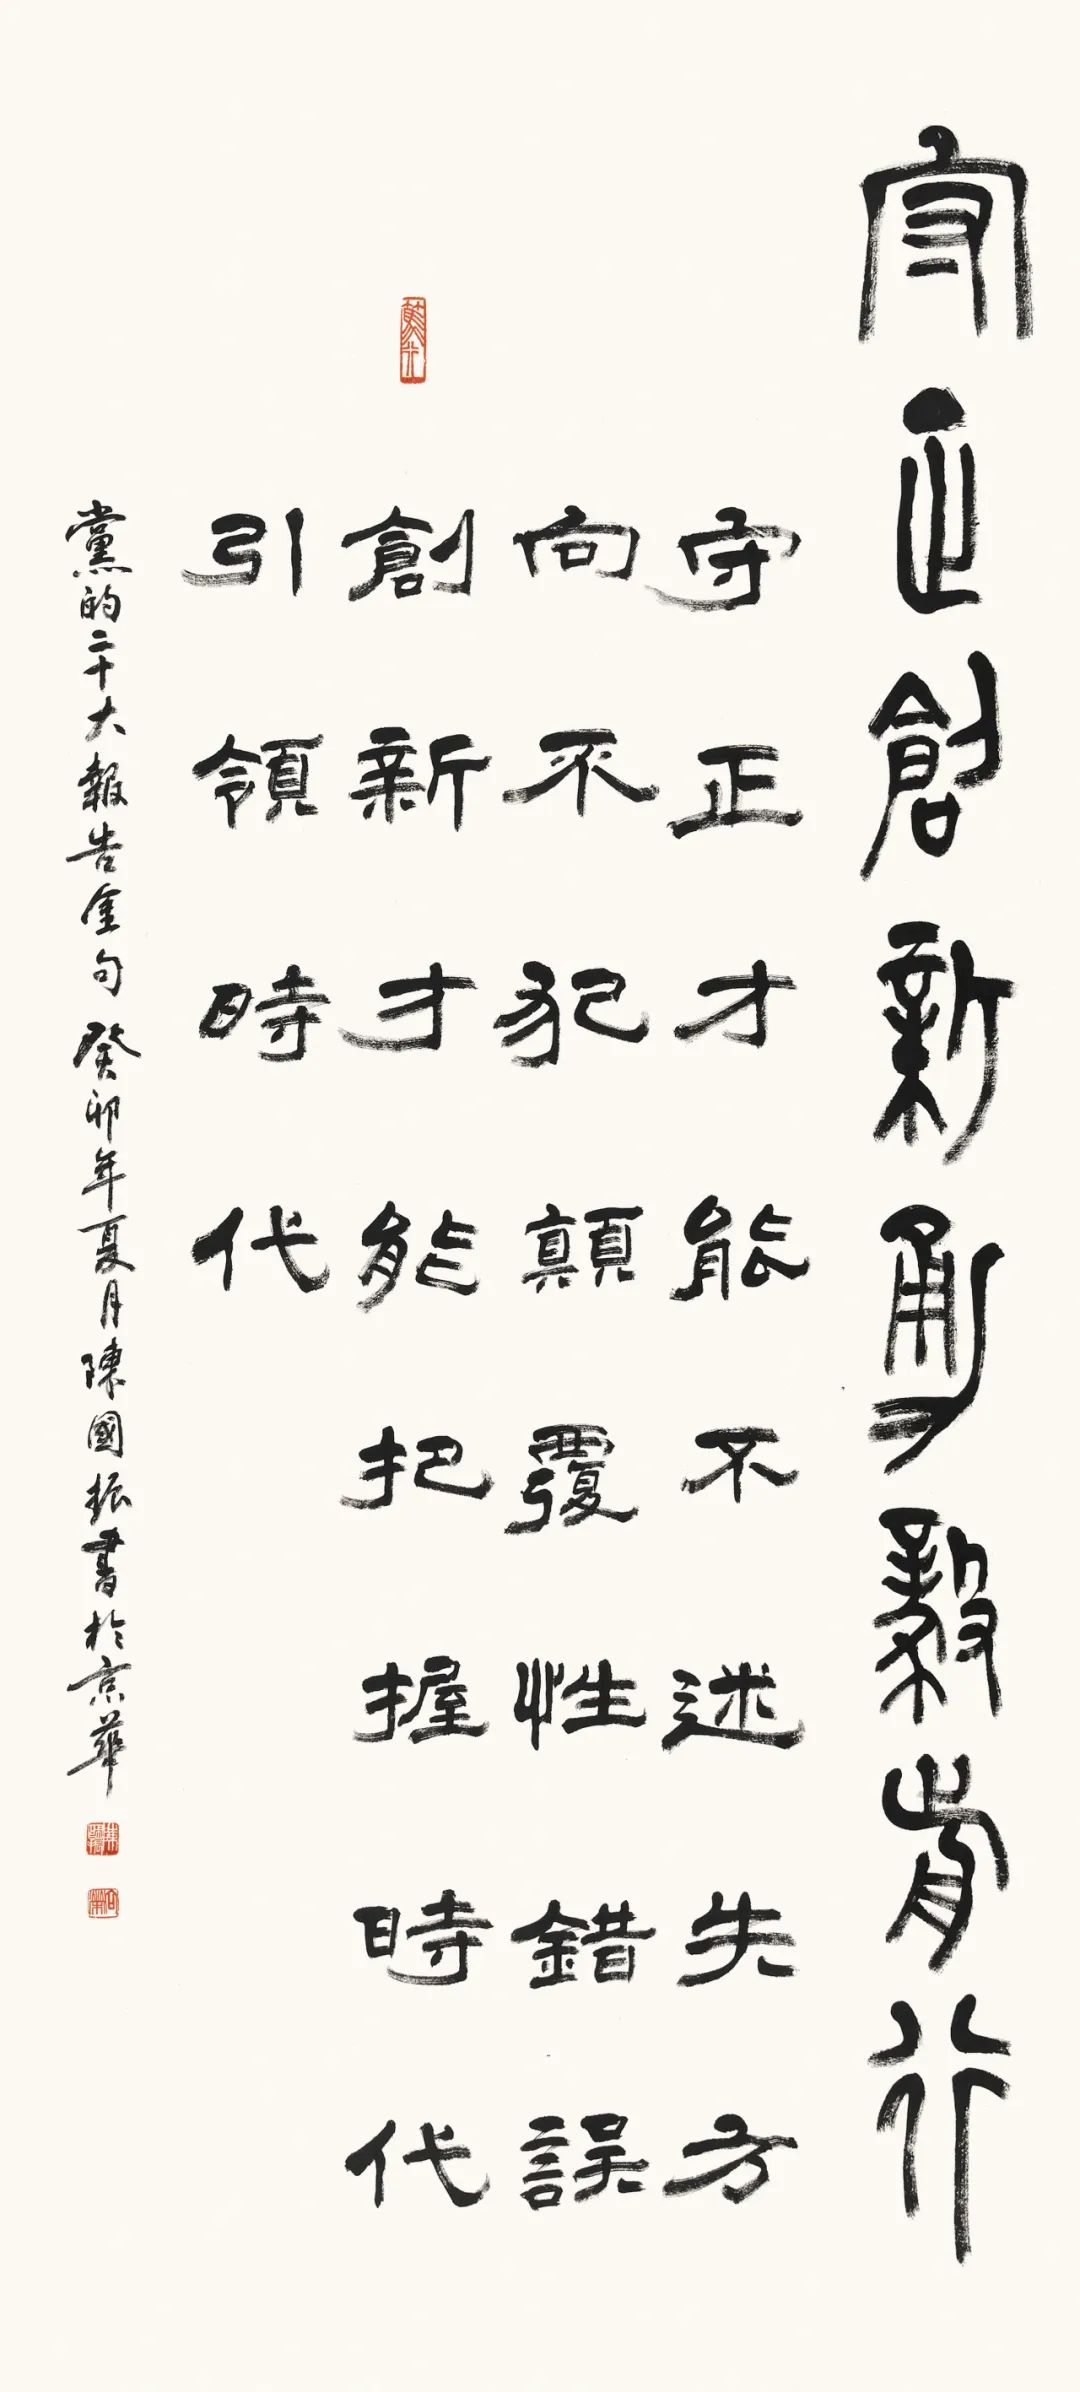 守正創新勇毅前行
守正才能不迷失方
向不犯顛覆性錯誤
創新才能把握時代
引領時代
黨的二十大報告金句癸卯年夏月陳國振書於京華